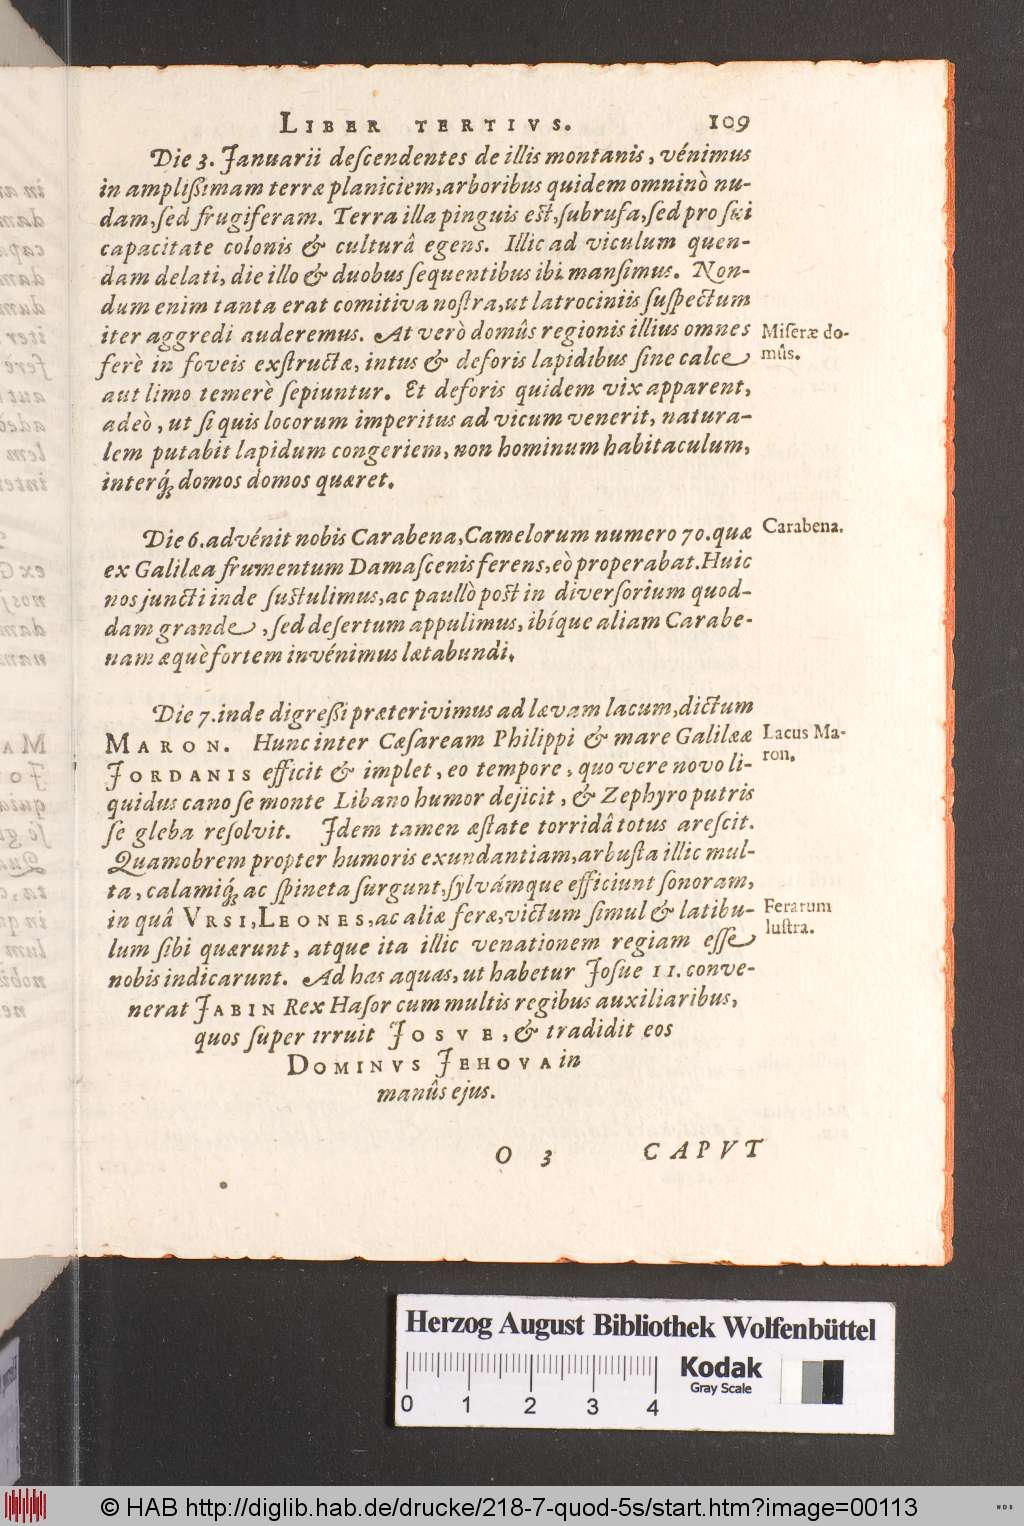 LIBER TERTIVS. 109
Die 3. Januarii deſcendentes de illis montanis, vénimus
in ampliſſimam terræ planiciem, arboribus quidem omninò nu-
dam, ſed frugiferam. Terra illa pinguis eſt, ſubrufa, ſed pro ſui
capacitate colonis & culturâ egens. Illic ad viculum quen-
dam delati, die illo & duobus ſequentibus ibi manſimus. Non-
dum enim tanta erat comitiva noſtra, ut latrociniis ſuſpectum
iter aggredi auderemus. At verò domûs regionis illius omnes
ferè in foveis exſtructæ, intus & deforis lapidibus ſine calce
aut limo temerè ſepiuntur. Et deforis quidem vix apparent,
adeò, ut ſi quis locorum imperitus ad vicum venerit, natura-
lem putabit lapidum congeriem, non hominum habitaculum,
interq́ꝫ domos domos quæret.
Miſeræ do-
mûs.
Die 6. advénit nobis Carabena, Camelorum numero 70. quæ
ex Galilæa frumentum Damaſcenis ferens, eò properabat. Huic
nos juncti inde ſuſtulimus, ac paullò poſt in diverſorium quod-
dam grande, ſed deſertum appulimus, ibíque aliam Carabe-
nam æquè fortem invénimus lætabundi.
Carabena.
Die 7. inde digreſſi præterivimus ad lævam lacum, dictum
MARON. Hunc inter Cæſaream Philippi & mare Galilææ
JORDANIS efficit & implet, eo tempore, quo vere novo li-
quidus cano ſe monte Libano humor dejicit, & Zephyro putris
ſe gleba reſolvit. Idem tamen æſtate torridâ totus areſcit.
Quamobrem propter humoris exundantiam, arbuſta illic mul-
ta, calamiq́ꝫ ac ſpineta ſurgunt, ſylvámque efficiunt ſonoram,
in quâ VRSI, LEONES, ac aliæ feræ, victum ſimul & latibu-
lum ſibi quærunt, atque ita illic venationem regiam eſſe
nobis indicarunt. Ad has aquas, ut habetur Joſue 11. conve-
nerat JABIN Rex Haſor cum multis regibus auxiliaribus,
quos ſuper irruit JOSVE, & tradidit eos
DOMINVS JEHOVA in
manûs ejus.
Lacus Ma-
ron.
Ferarum
luſtra.
O 3 CAPVT
Herzog August Bibliothek Wolfenbüttel
0 1 2 3 4
Kodak
Gray Scale
© HAB http://diglib.hab.de/drucke/218-7-quod-5s/start.htm?image=00113